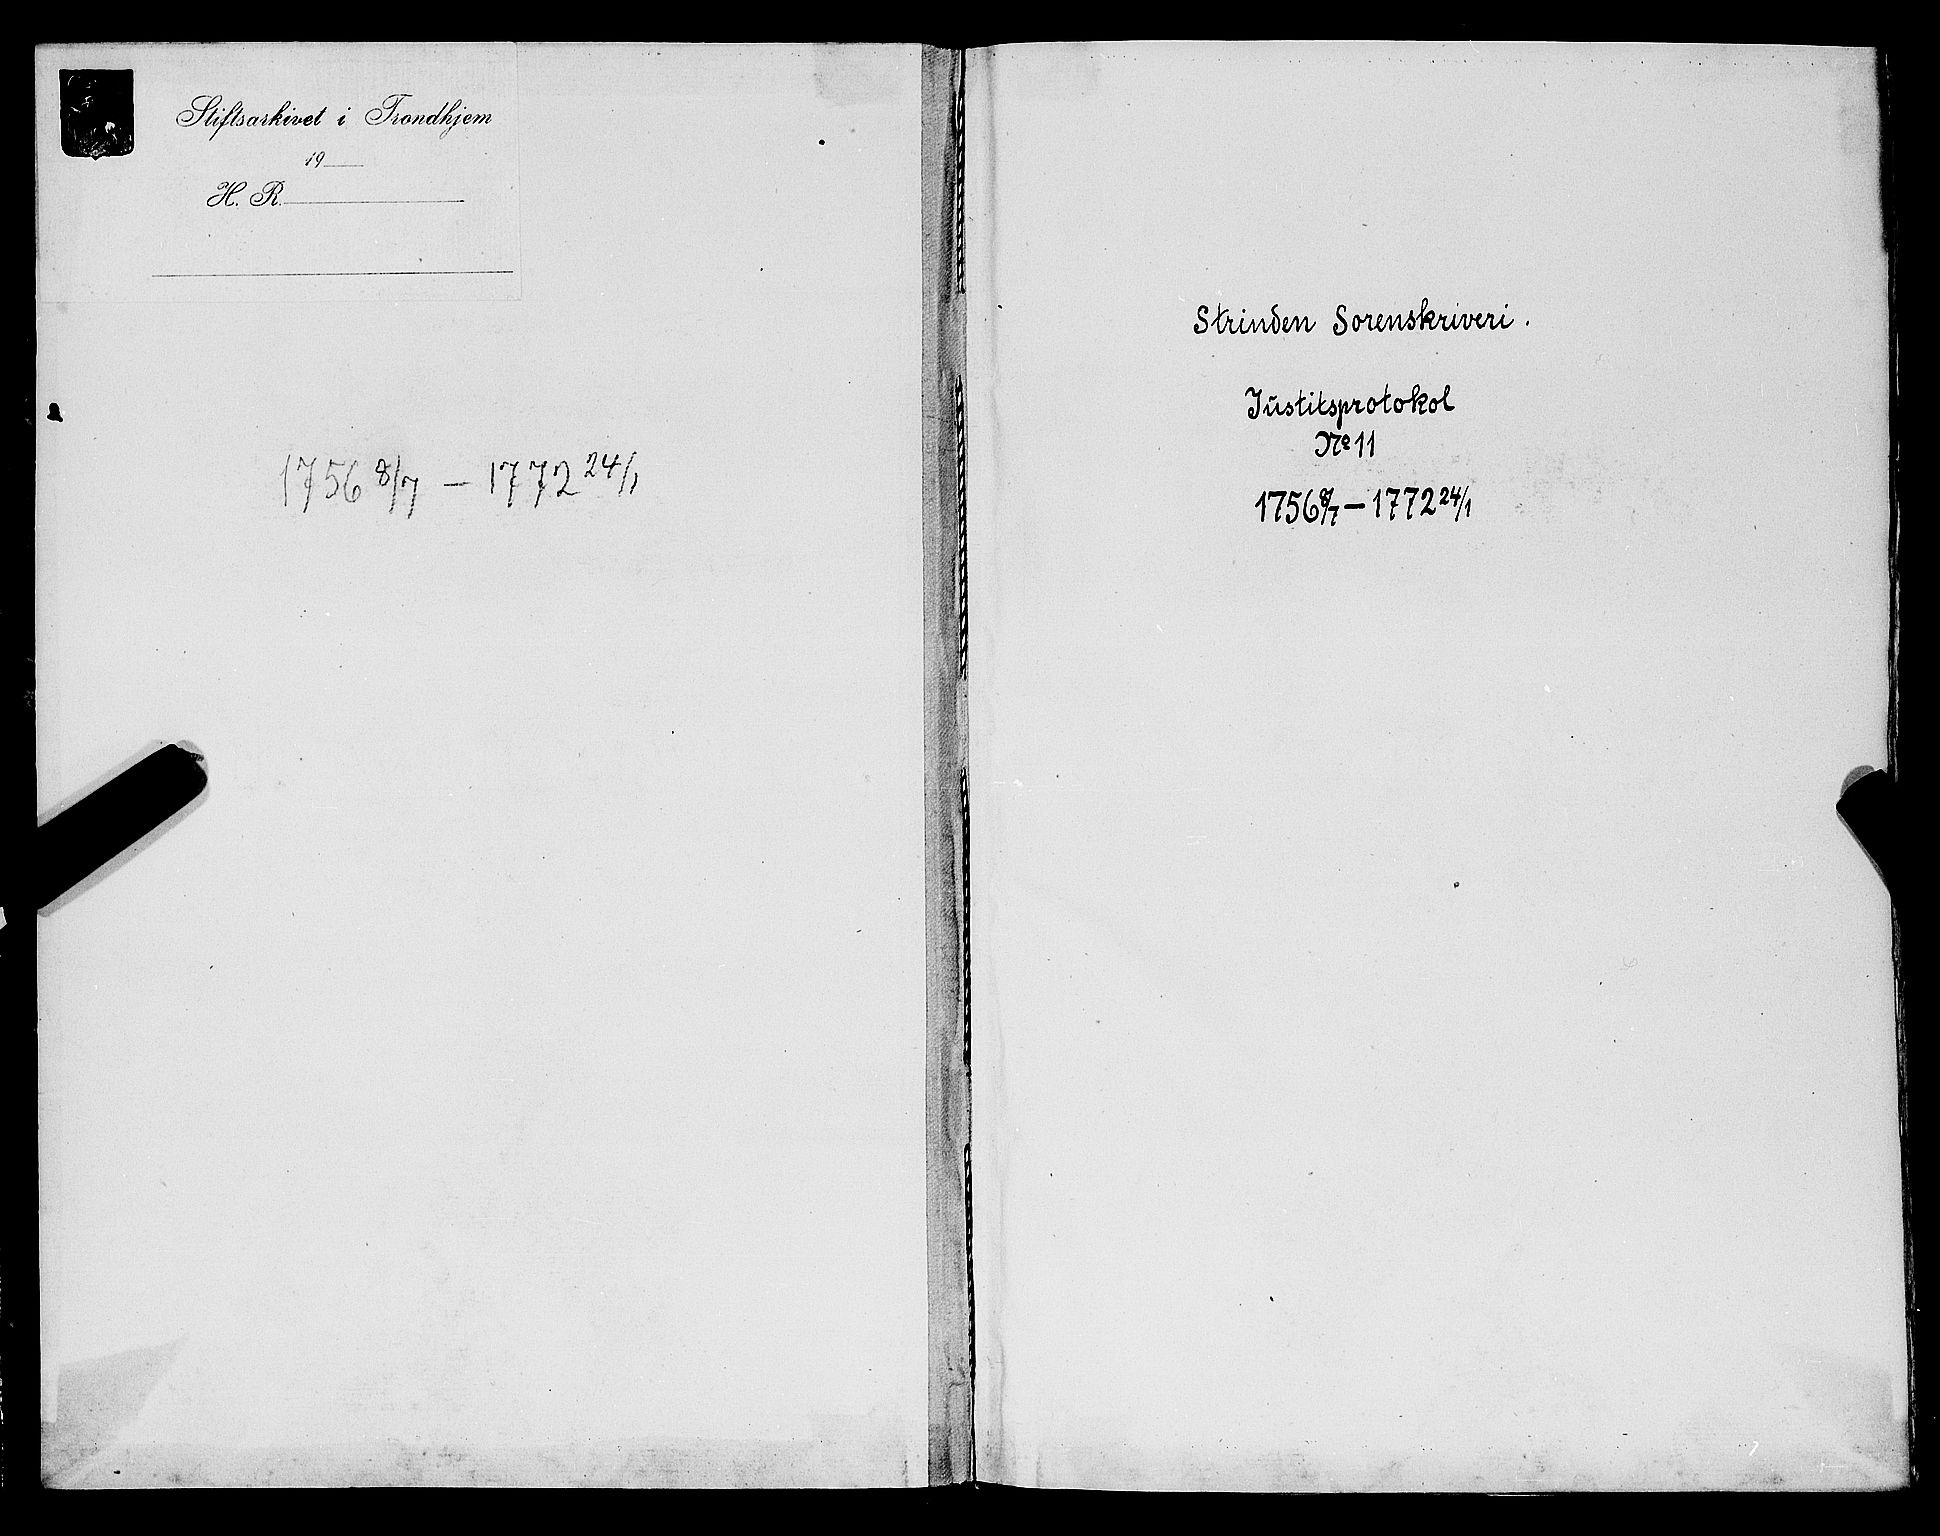 Stiftsarkivet i Trondhjem
19
H. R.
1756 8/7 — 1772 24/1
Strinden Sorenskriveri.
Justitsprotokol
No 11
1756 8/7 — 1772 24/1